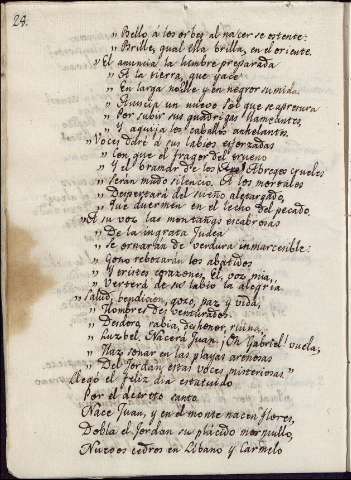 24.
„ Bello, á los orbes al nacer se ostente:
„ Brille, qual ella brilla, en el oriente.
„ El anuncia la lumbre preparada
„ A la tierra, que yace
„ En larga noche y en negror sumida.
„ Anuncia un nuevo Sol que se apresura
„ Por subir sus quadrigas flameantes,
„ Y aguija los caballos anhelantes.
„ Voces daré á sus labios esforzadas
„ Con que el fragor del trueno
„ Y el bramar de los Abregos crueles
„ Serán mudo silencio. A los mortales
„ Despertará del sueño aletargado,
„ Que duermen en el lecho del pecado.
„ A su voz las montañas escabrosas
„ De la ingrata Judea
„ Se ornarán de verdura inmarcesible:
„ Gozo rebozarán los abatidos
„ Y tristes corazones. El, voz mia,
„ Verterá de su labio la alegria.
„ Salud, bendicion, gozo, paz y vida,
„ Hombres desventurados.
„ Desdoro, rabia, deshonor, ruina,
„ Luzbel. Nacerá Juan. ¡Oh Gabriel! vuela;
„ Haz sonar en las playas arenosas
„ Del Jordan estas voces misteriosas."
Llegó el feliz dia estatuido
Por el decreto santo.
Nace Juan, y en el monte nacen flores,
Dobla el Jordan su plácido murmullo,
Nuevos cedros en Líbano y Carmelo